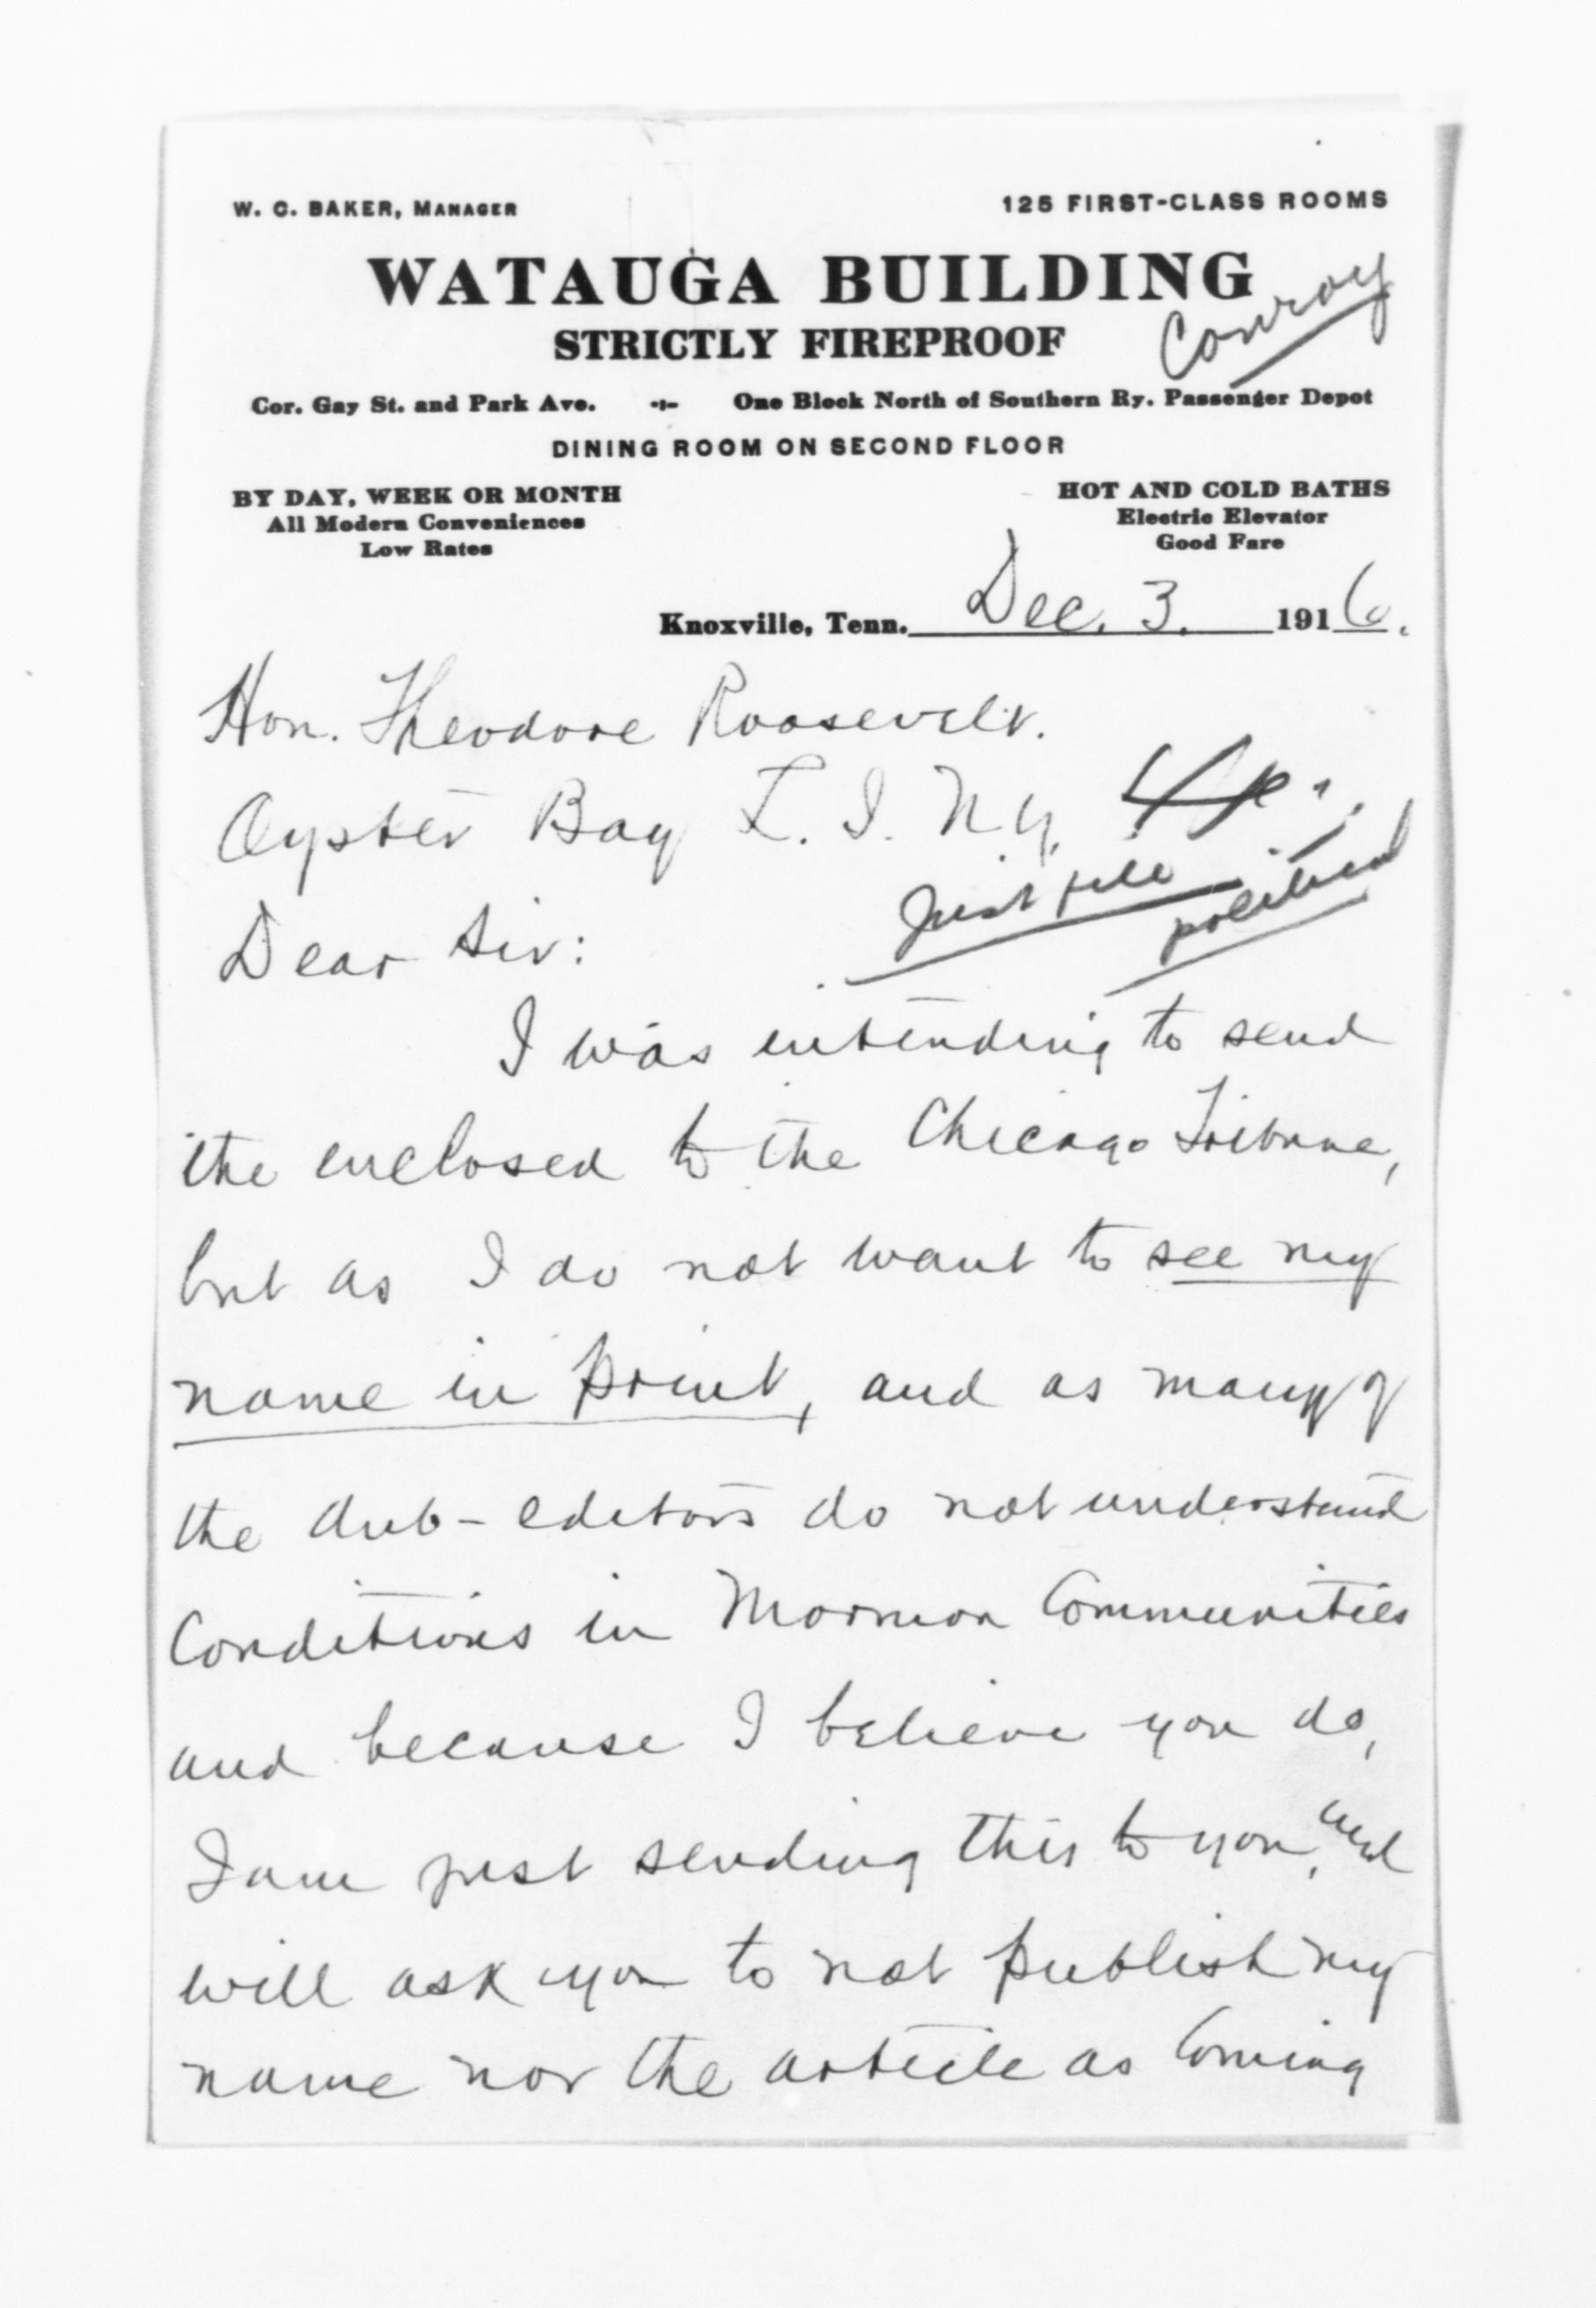 W. C. BAKER, MANAGER
125 FIRST-CLASS ROOMS
WATAUGA BUILDING
Conroy
STRICTLY FIREPROOF
Cor. Gay St. and Park Ave.
One Block North of Southern Ry. Passenger Depot
DINING ROOM ON SECOND FLOOR
BY DAY, WEEK OR MONTH
All Modern Conveniences
Low Rates
HOT AND COLD BATHS
Electric Elevator
Good Fare
Knoxville, Tenn. Dec. 3. 1916.
Hon. Theodore Roosevelt.
Oyster Bay L. I. N y.
Just file
political
Dear Sir:
I was intending to send
the enclosed to the Chicago Tribune,
but as I do not want to see my
name in print, and as many of
the sub-editors do not understand
Conditions in Mormon Communities
and because I believe you do,
I am just sending this to you, and
will ask you to not publish my
name nor the article as Coming